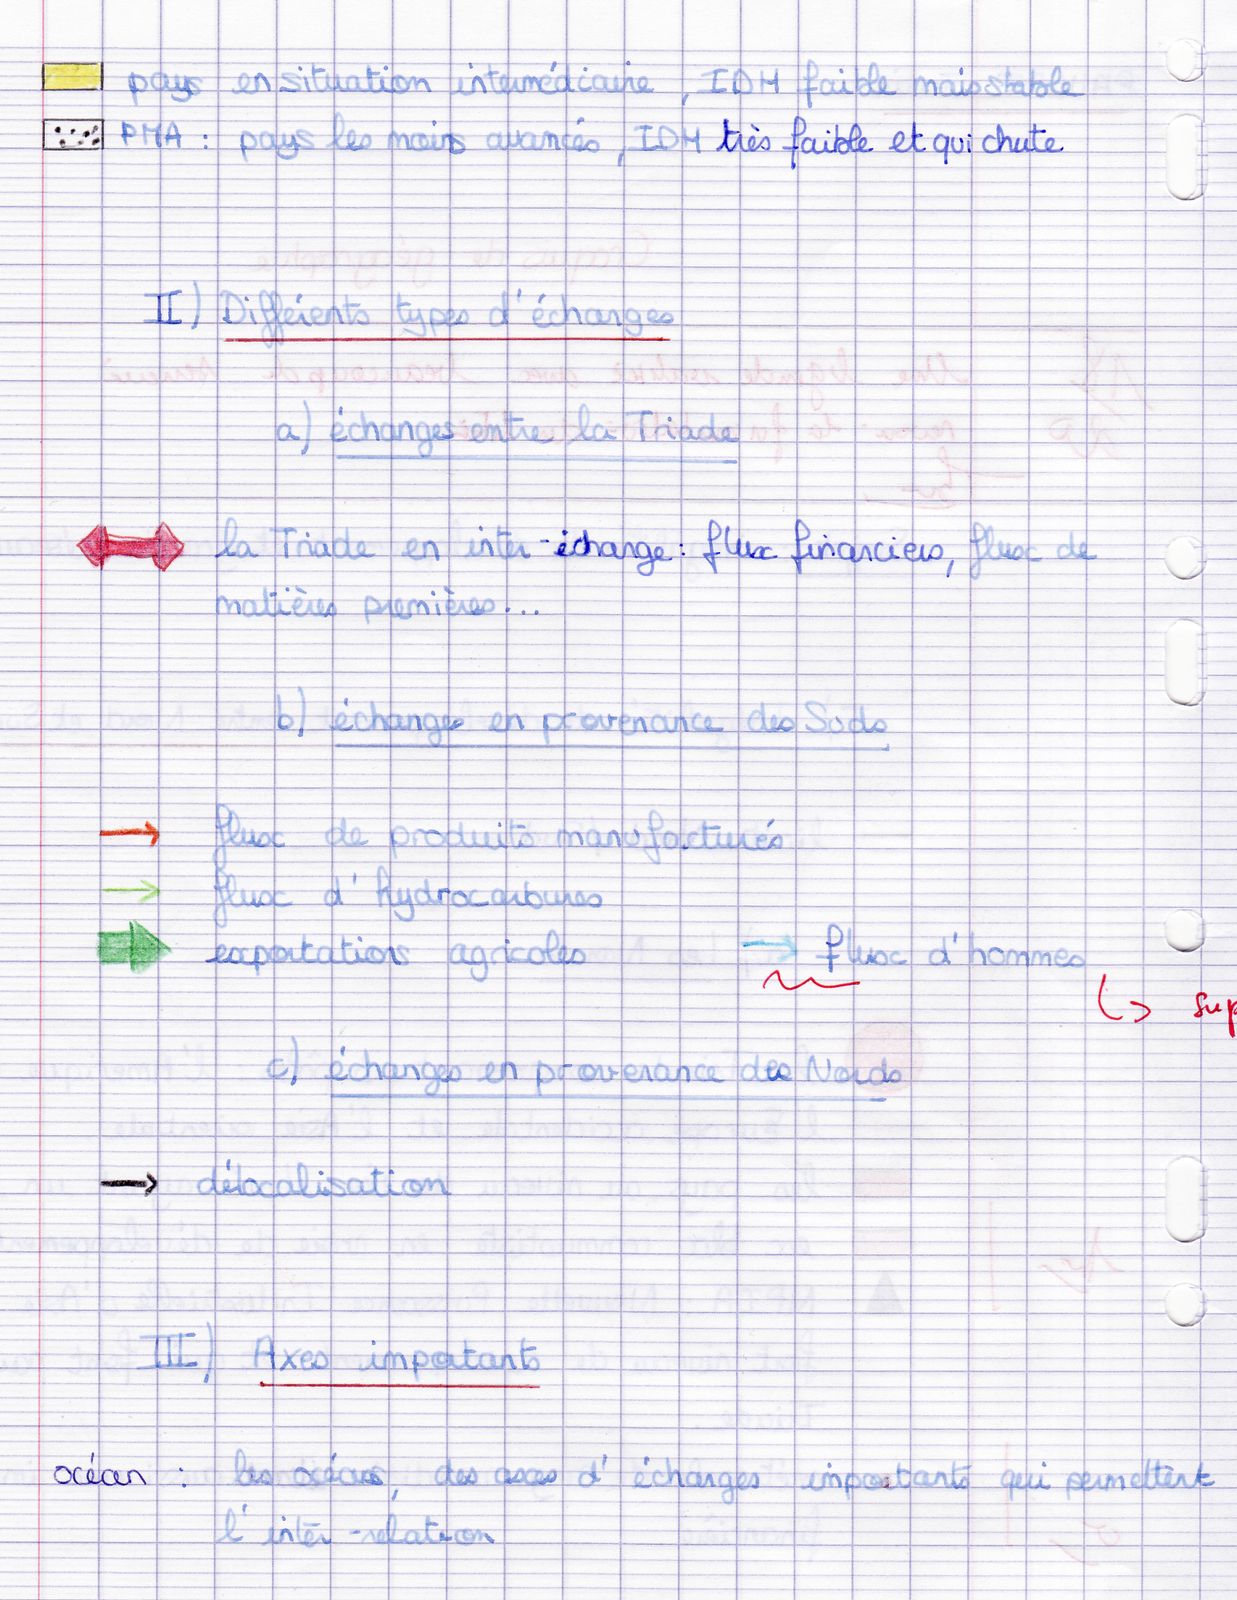 pays en situation intermédiaire, IDH faible mais stable
PMA : pays les moins avancés, IDH très faible et qui chute
II) Différents types d'échanges
a) échanges entre la Triade
la Triade en inter-échange : flux financiers, flux de
matières premières...
b) échanges en provenance des Suds
flux de produits manufacturés
flux d'hydrocarbures
exportations agricoles → flux d'hommes
↳ sup
c) échanges en provenance des Nords
délocalisation
III) Axes importants
océan : les océans, des axes d'échanges importants qui permettent
l'inter-relation